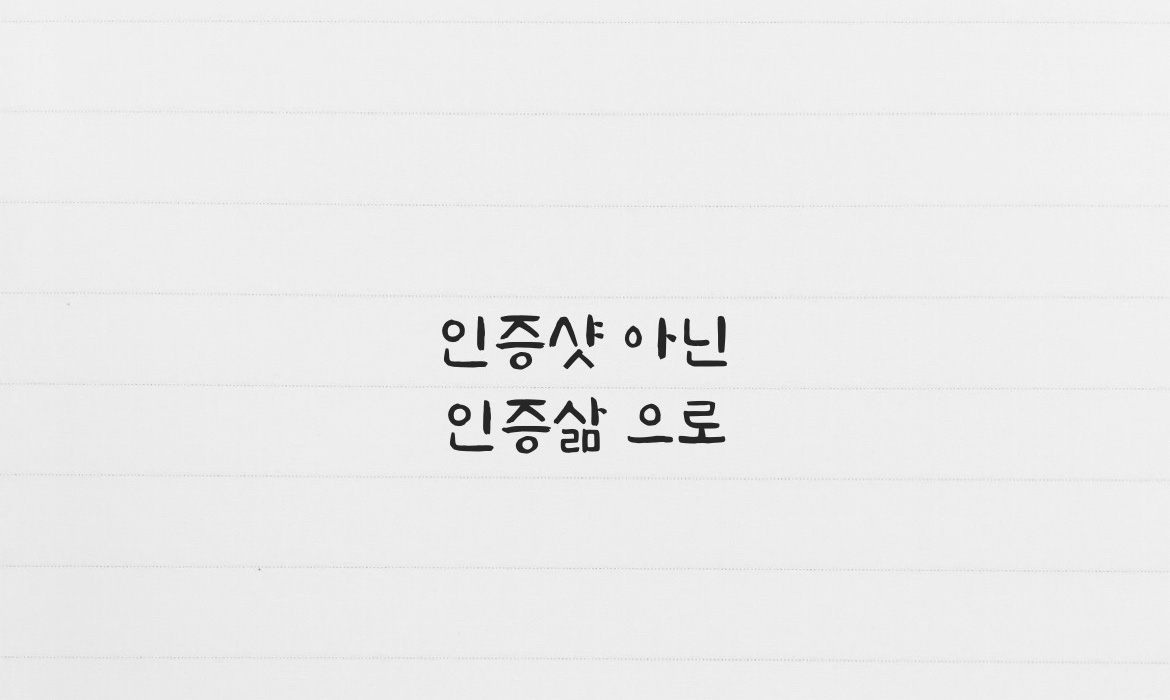 인증샷 아닌
인증삶 으로